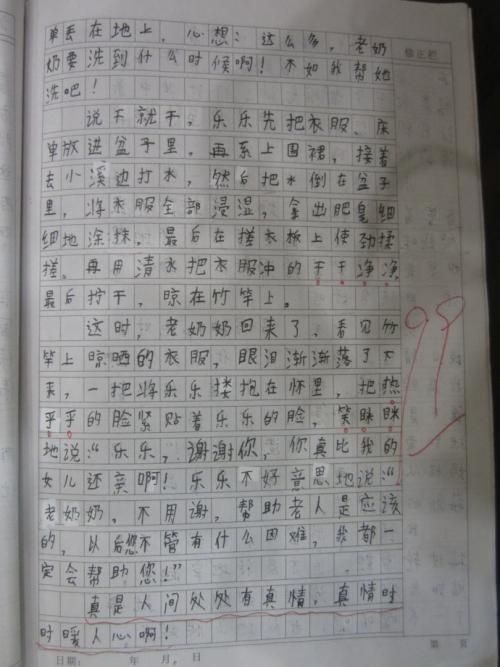 单丢在地上，心想：这么多，老奶
修正栏
奶要洗到什么时候啊！不如我帮她
洗吧！
说干就干，乐乐先把衣服、床
单放进盆子里，再系上围裙，接着
去小溪边打水，然后把水倒在盆子
里，将衣服全部浸湿，拿出肥皂细
细地涂抹，最后在搓衣板上使劲揉
搓。再用清水把衣服冲的干干净净，
最后拧干，晾在竹竿上。
这时，老奶奶回来了，看见竹
竿上晾晒的衣服，眼泪渐渐落了下
来，一把将乐乐搂抱在怀里，把热
乎乎的脸紧贴着乐乐的脸，笑眯眯
地说：“乐乐，谢谢你，你真比我的
女儿还亲啊！乐乐不好意思地说：“
老奶奶，不用谢，帮助老人是应该
的，以后您不管有什么困难，我都一
定会帮助您！”
真是人间处处有真情，真情时
时暖人心啊！
99
日期： 年 月 日
第 页